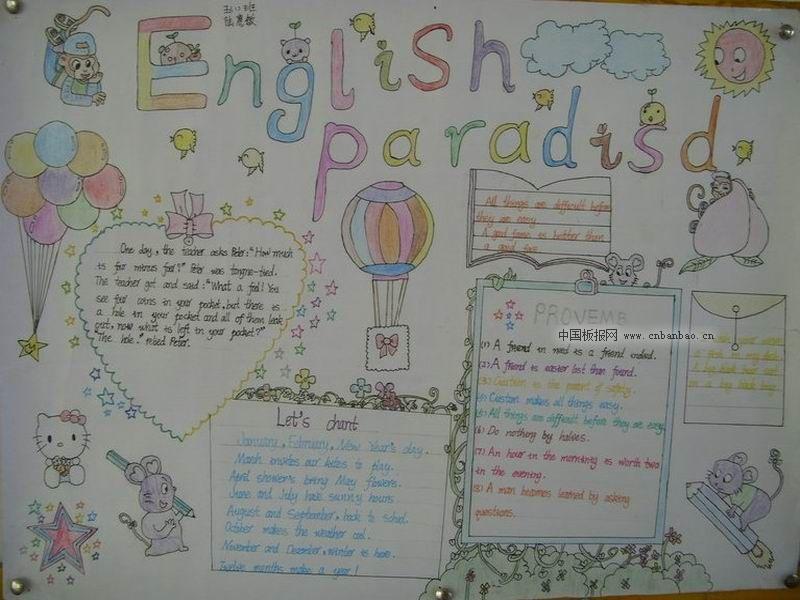 五(2)班
English
paradisd
One day, the teacher asks Peter: "How much
is four minus four?" Peter was tongue-tied.
The teacher got and said: "What a fool! You
see four coins in your pocket, but there is
a hole in your pocket and all of them leak
out, now what is left in your pocket?"
"The hole." Peter.
All things are difficult before
they are easy
A good fame is better than
a good face
PROVEMB
中国板报网 www.cnbanbao.cn
(1) A friend in need is a friend indeed.
(2) A friend is easier lost than found.
(3) Caution is the parent of safety.
(4) Custom makes all things easy.
(5) All things are difficult before they are easy.
(6) Do nothing by halves.
(7) An hour in the morning is worth two
in the evening.
(8) A man becomes learned by asking
questions.
Let's chant
January, February, New Year's day.
March invites our kites to play.
April showers bring May flowers.
June and July have sunny hours
August and September, back to school.
October makes the weather cool.
November and December, winter is here.
Twelve months make a year!